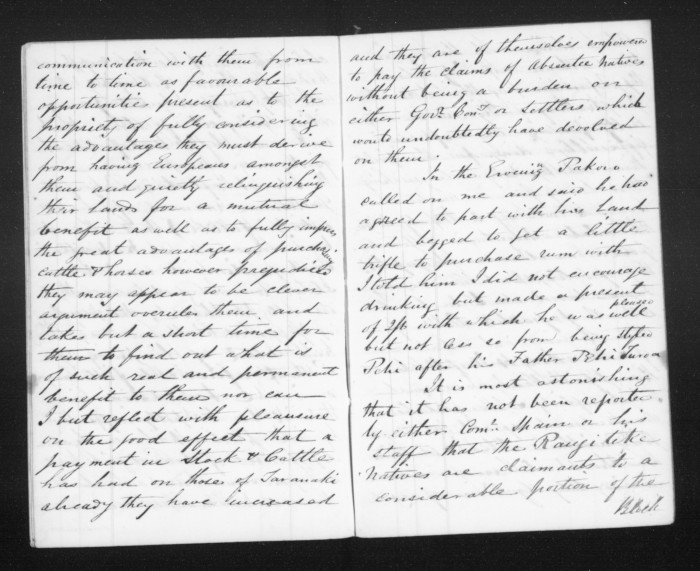 communication with them from
time to time as favourable
opportunities present as to the
propriety of fully considering
the advantages they must derive
from having Europeans amongst
them and quietly relinquishing
their lands for a mutual
benefit as well as to fully impress
the great advantages of purchasing
cattle & horses however prejudiced
they may appear to be clever
argument overrules them and
takes but a short time for
them to find out what is
of such real and permanent
benefit to them nor can
I but reflect with pleasure
on the good effect that a
payment in Stock & Cattle
has had on those of Taranaki
already they have increased
and they are of themselves empowered
to pay the claims of absentee natives
without being a burden on
either Govt. Comy. or settlers which
would undoubtedly have devolved
on them.
In the Evening
called on me and said he had
agreed to part with his Land
and begged to get a little
trifle to purchase rum with
I told him I did not encourage
drinking but made a present
of 2/- with which he was well pleased
but not less so from being styled
Pehi after his Father Pehi Turoa
It is most astonishing
that it has not been reported
by either Comr. Spain or his
staff that the Rangitike
Natives are claimants to a
considerable portion of the
Block